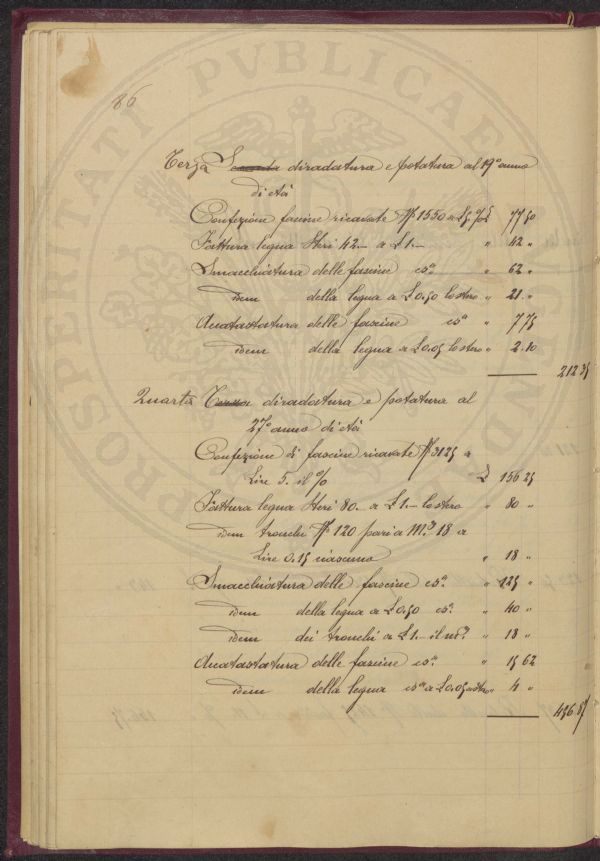 86
Terza Seconda diradatura e potatura al 19° anno
di età
Confezione fascine ricavate N° 1550 a L 5 % £ 77 50
Fattura legna Steri 42.— a £ 1.— " 42 "
Smacchiatura delle fascine es.a " 62 "
idem della legna a £ 0.50 lo stero " 21 "
Accatastatura delle fascine es.a " 7 75
idem della legna a £ 0.05 lo stero " 2.10
212.35
Quarta Terza diradatura e potatura al
27° anno di età
Confezione di fascine ricavate N° 3125 a
Lire 5. il % £ 156 25
Fattura legna Steri 80.— a £ 1.— lo stero " 80 "
idem tronchi N° 120 pari a M.3 18 a
Lire 0.15 ciascuno " 18 "
Smacchiatura delle fascine es.a " 125 "
idem della legna a £ 0.50 es.a " 40 "
idem dei tronchi a £ 1.— il m.3 " 18 "
Accatastatura delle fascine es.a " 15 62
idem della legna es.a a £ 0.05 " 4 "
456.87
PROSPERITATI PVBLICAE AVGENDAE